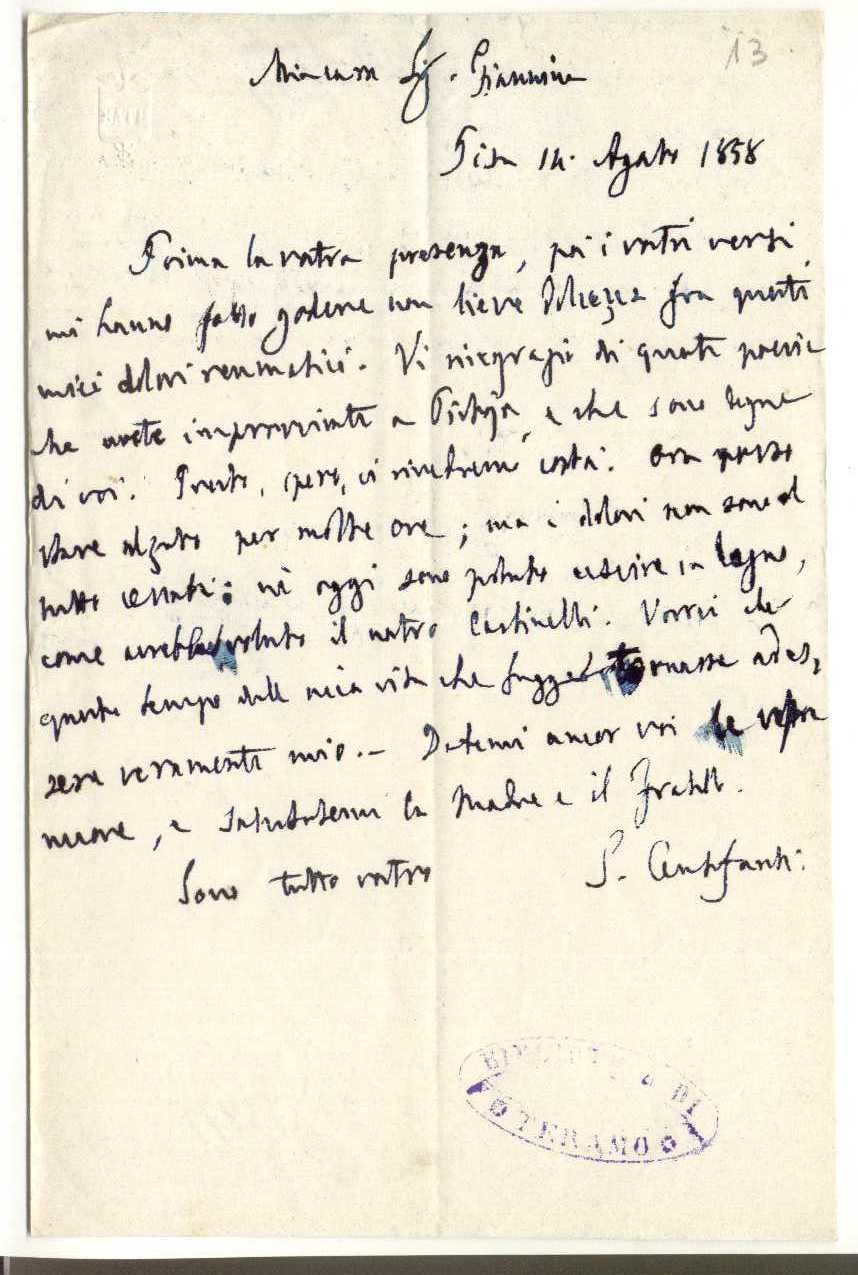 13
Mia cara Sig. Giannina
Pisa 14. Agosto 1858
Prima la vostra presenza, poi i vostri versi
mi hanno fatto godere non lieve dolcezza fra questi
miei dolori reumatici. Vi ringrazio di queste poesie
che avete improvvisate a Pistoja, e che sono degne
di voi. Presto, spero, ci rivedremo costà. Ora posso
stare alzato per molte ore; ma i dolori non sono al
tutto cessati: nè oggi sono potuto uscire in legno,
come avrebbe voluto il nostro Castinelli. Vorrei che
questo tempo della mia vita che fugge tornasse ad es,
sere veramente mio. – Datemi ancor voi le vostre
nuove, e salutatemi la Madre e il Fratello.
Sono tutto vostro
S. Centofanti.
BIBLIOTECA DI
TERAMO